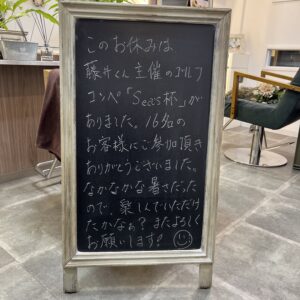 このお休みは
藤井くん主催のゴルフ
コンペ「Seeds杯」が
ありました。16名の
お客様にご参加頂き
ありがとうございました。
なかなかな暑さだった
ので、楽しんでいただけ
たかなぁ？またよろしく
お願いします？